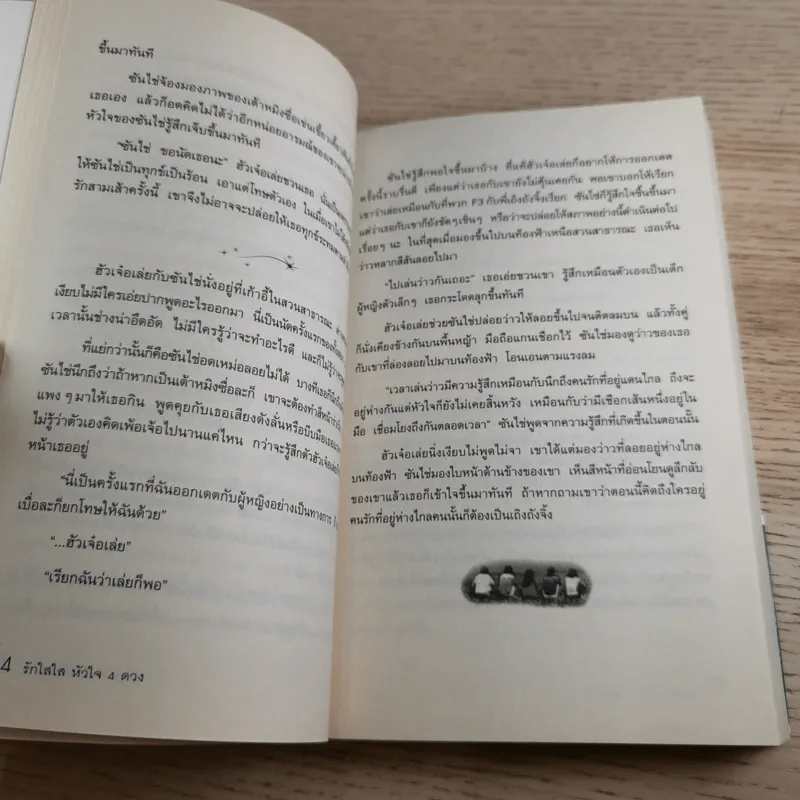 ขึ้นมาทันที
ซันไช่จ้องมองภาพของเต้าหมิงซื่อเช่นเขี้ยวเคี้ยว
เธอเอง แล้วก็อดคิดไม่ได้ว่าอีกหน่อยอารมณ์ของเขา
หัวใจของซันไช่รู้สึกเจ็บขึ้นมาทันที
“ซันไช่ ขอนัดเธอนะ” ฮัวเจ๋อเล่ยชวนเธอ นั่นเป็น
ให้ซันไช่เป็นทุกข์เป็นร้อน เอาแต่โทษตัวเอง ในเมื่อเขาไม่ได้
รักสามเส้าครั้งนี้ เขาจึงไม่อาจจะปล่อยให้เธอทุกข์ระทม
ฮัวเจ๋อเล่ยกับซันไช่นั่งอยู่ที่เก้าอี้ในสวนสาธารณะ
เงียบไม่มีใครเอ่ยปากพูดอะไรออกมา นี่เป็นนัดครั้งแรกของทั้ง
เวลานั้นช่างน่าอึดอัด ไม่มีใครรู้ว่าจะทำอะไรดี และก็ไม่รู้ว่าจะ
ที่แย่กว่านั้นก็คือซันไช่อดเหม่อลอยไม่ได้ บางทีเธอก็
ซันไช่นึกถึงว่าถ้าหากเป็นเต้าหมิงซื่อละก็ เขาจะต้องทำสีหน้า
แพงๆมาให้เธอกิน พูดคุยกับเธอเสียงดังลั่นหรือบีบมือเธอ
ไม่รู้ว่าตัวเองคิดเพ้อเจ้อไปนานแค่ไหน กว่าจะรู้สึกตัวฮัวเจ๋อเล่ยก็
หน้าเธออยู่
“นี่เป็นครั้งแรกที่ฉันออกเดตกับผู้หญิงอย่างเป็นทางการ
เบื่อละก็ยกโทษให้ฉันด้วย”
“...ฮัวเจ๋อเล่ย”
“เรียกฉันว่าเล่ยก็พอ”
4 รักใสใส หัวใจ 4 ดวง
ซันไช่รู้สึกพอใจขึ้นมาบ้าง ที่แท้ฮัวเจ๋อเล่ยก็อยากให้การออกเดต
ครั้งนี้ราบรื่นดี เพียงแต่ว่าเธอกับเขายังไม่คุ้นเคยกัน พอเขาบอกให้เรียก
เขาว่าเล่ยเหมือนกับที่พวก F3 กับพี่เอิงยังจิ้งเรียก ซันไช่ก็รู้สึกใจชื้นขึ้นมา
แต่ว่าเธอกับเขาก็ยังขัดๆเขินๆ หรือว่าจะปล่อยให้สภาพอย่างนี้ดำเนินต่อไป
เรื่อยๆ นะ ในที่สุดเมื่อมองขึ้นไปบนท้องฟ้าเหนือสวนสาธารณะ เธอเห็น
ว่าวหลากสีสันลอยไปมา
“ไปเล่นว่าวกันเถอะ” เธอเอ่ยชวนเขา รู้สึกเหมือนตัวเองเป็นเด็ก
ผู้หญิงตัวเล็กๆ เธอกระโดดลุกขึ้นทันที
ฮัวเจ๋อเล่ยช่วยซันไช่ปล่อยว่าวให้ลอยขึ้นไปจนติดลมบน แล้วทั้งคู่
ก็นั่งเคียงข้างกันบนพื้นหญ้า มือถือแกนเชือกไว้ ซันไช่มองดูว่าวของเธอ
กับเขาที่ล่องลอยไปมาบนท้องฟ้า โอนเอนตามแรงลม
“เวลาเล่นว่าวมีความรู้สึกเหมือนกับนึกถึงคนรักที่อยู่แดนไกล ถึงจะ
อยู่ห่างกันแต่หัวใจก็ยังไม่เคยสิ้นหวัง เหมือนกับว่ามีเชือกเส้นหนึ่งอยู่ใน
มือ เชื่อมโยงถึงกันตลอดเวลา” ซันไช่พูดจากความรู้สึกที่เกิดขึ้นในตอนนั้น
ฮัวเจ๋อเล่ยนิ่งเงียบไม่พูดไม่จา เขาได้แต่มองว่าวที่ลอยอยู่ห่างไกล
บนท้องฟ้า ซันไช่มองใบหน้าด้านข้างของเขา เห็นสีหน้าที่อ่อนโยนดูลึกลับ
ของเขาแล้วเธอก็เข้าใจขึ้นมาทันที ถ้าหากถามเขาว่าตอนนี้คิดถึงใครอยู่
คนรักที่อยู่ห่างไกลคนนั้นก็ต้องเป็นเถิงถังจิ้ง